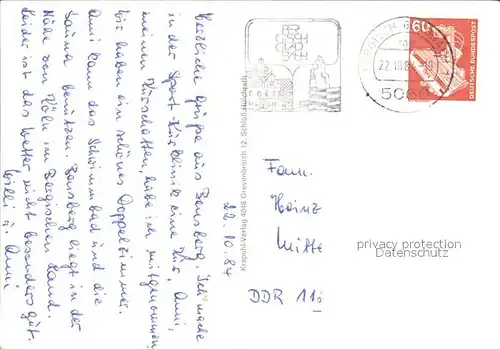 Herzliche Grüße aus Bensberg. Ich mache
in der Sport-Kurklinik eine Kur, Anni,
meinen Kurschatten, habe ich mitgenommen,
Wir haben ein schönes Doppelzimmer.
Anni kann das Schwimmbad und die
Sauna benutzen. Bensberg liegt in der
Nähe von Köln im Bergischen Land.
Leider ist das Wetter nicht besonders gut.
Willi u. Anni
22.10.84
Krapohl-Verlag 4048 Grevenbroich 12, Schloß Hülchrath
22.10.84-19
5060
60
DEUTSCHE BUNDESPOST
Fam.
Heinz
Mitte
DDR 11
privacy protection
Datenschutz